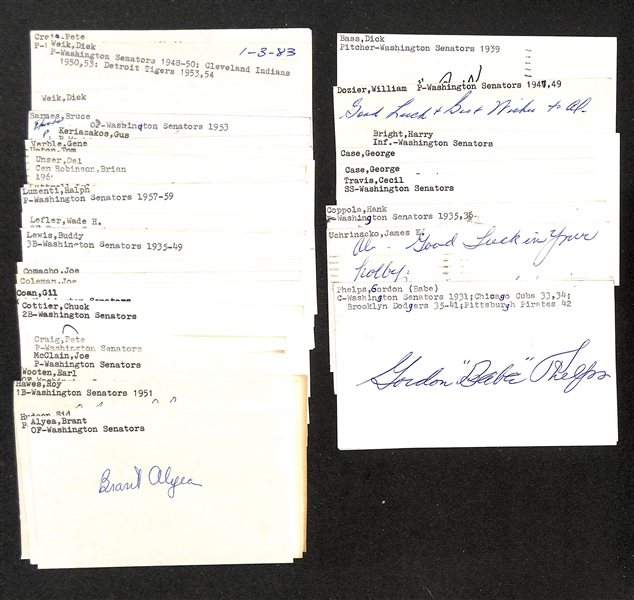 Craig,Pete
Weik,Dick
P-Washington Senators 1948-50: Cleveland Indians
1950,53: Detroit Tigers 1953,54
1-3-83
Weik,Dick
Barnes,Bruce
OF-Washington Senators 1953
Keriazakos,Gus
Verble,Gene
Upton,Tom
Unser,Del
Cen
Robinson,Brian
196
Lumenti,Ralph
P-Washington Senators 1957-59
Lefler,Wade H.
Lewis,Buddy
3B-Washington Senators 1935-49
Comacho,Joe
Coleman,Joe
Coan,Gil
Cottier,Chuck
2B-Washington Senators
Craig,Pete
P-Washington Senators
McClain,Joe
P-Washington Senators
Wooten,Earl
Hawes,Roy
1B-Washington Senators 1951
Hudson,Sid
Alyea,Brant
OF-Washington Senators
Brant Alyea
Bass,Dick
Pitcher-Washington Senators 1939
Dozier,William P-Washington Senators 1947,49
Good Luck & Best Wishes to Al-
Bright,Harry
Inf.-Washington Senators
Case,George
Case,George
Travis,Cecil
SS-Washington Senators
Coppola,Hank
P-Washington Senators 1935,36
Uchrinscko,James E.
Al- Good Luck in Your
hobby.
Phelps,Gordon (Babe)
C-Washington Senators 1931;Chicago Cubs 33,34;
Brooklyn Dodgers 35-41;Pittsburgh Pirates 42
Gordon "Babe" Phelps